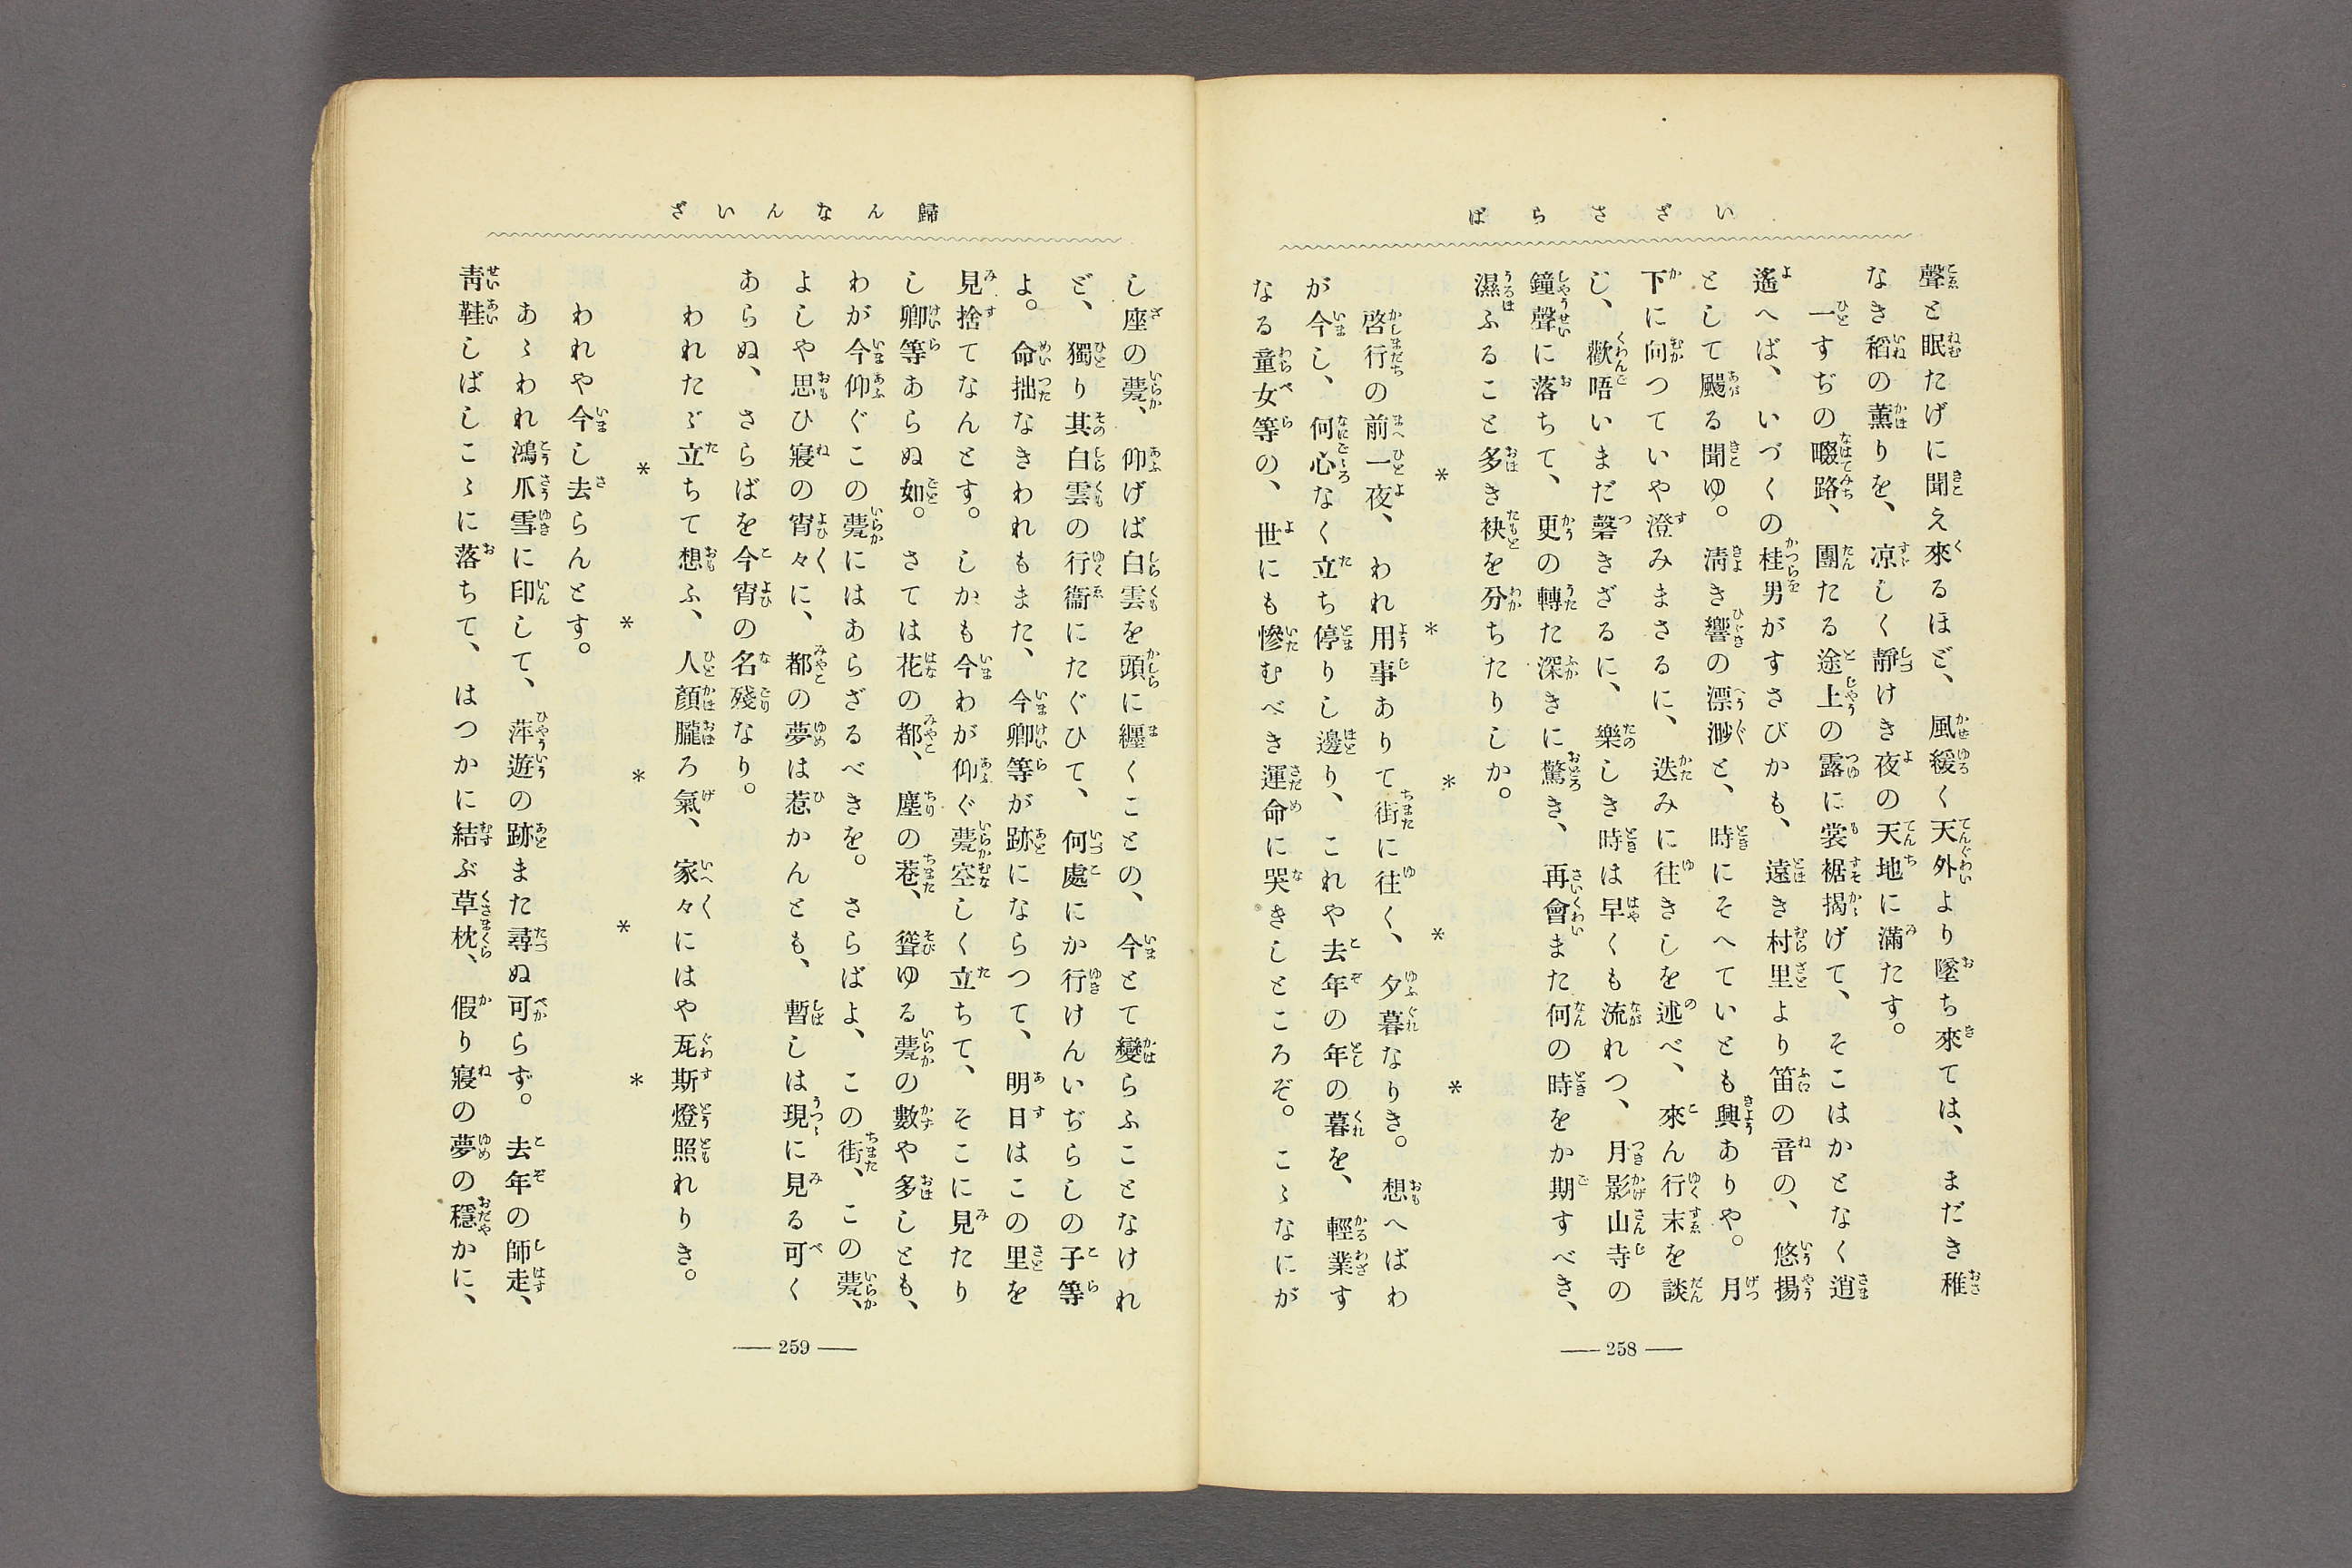 いざさらば
聲と眠たげに聞え來るほど、風緩く天外より墜ち來ては、まだき稚
なき稻の薫りを、凉しく靜けき夜の天地に滿たす。
一すぢの畷路、團たる途上の露に裳裾揭げて、そこはかとなく逍
遙へば、いづくの桂男がすさびかも、遠き村里より笛の音の、悠揚
として颺る聞ゆ。淸き響の漂渺と、時にそへていとも興ありや。月
下に向つていや澄みまさるに、迭みに往きしを述べ、來ん行末を談
じ、歡晤いまだ罄きざるに、樂しき時は早くも流れつ、月影山寺の
鐘聲に落ちて、更の轉た深きに驚き、再會また何の時をか期すべき、
濕ふること多き袂を分ちたりしか。
＊＊＊＊＊
啓行の前一夜、われ用事ありて街に往く、夕暮なりき。想へばわ
が今し、何心なく立ち停りし邊り、これや去年の年の暮を、輕業す
なる童女等の、世にも慘むべき運命に哭きしところぞ。こゝなにが
258
歸なんいざ
し座の甍、仰げば白雲を頭に纒くことの、今とて變らふことなけれ
ど、獨り其白雲の行衞にたぐひて、何處にか行けんいぢらしの子等
よ。命拙なきわれもまた、今卿等が跡にならつて、明日はこの里を
見捨てなんとす。しかも今わが仰ぐ甍空しく立ちて、そこに見たり
し卿等あらぬ如。さては花の都、塵の巷、聳ゆる甍の數や多しとも、
わが今仰ぐこの甍にはあらざるべきを。さらばよ、この街、この甍、
よしや思ひ寢の宵々に、都の夢は惹かんとも、暫しは現に見る可く
あらぬ、さらばを今宵の名殘なり。
われたゞ立ちて想ふ、人顏朧ろ氣、家々にはや瓦斯燈照れりき。
＊＊＊＊＊
われや今し去らんとす。
あゝわれ鴻爪雪に印して、萍遊の跡また尋ぬ可らず。去年の師走、
靑鞋しばしこゝに落ちて、はつかに結ぶ草枕、假り寢の夢の穩かに、
259